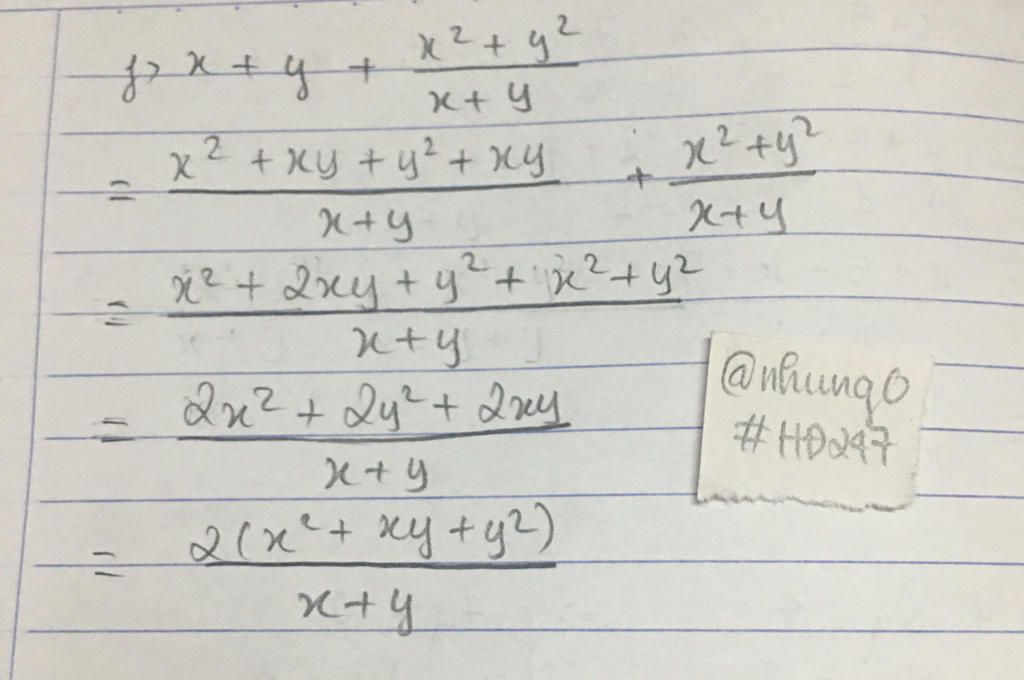 f> x + y + \frac{x² + y²}{x + y}
= \frac{x² + xy + y² + xy}{x + y} + \frac{x² + y²}{x + y}
= \frac{x² + 2xy + y² + x² + y²}{x + y}
= \frac{2x² + 2y² + 2xy}{x + y}
= \frac{2(x² + xy + y²)}{x + y}
@nhung0
#HĐ247